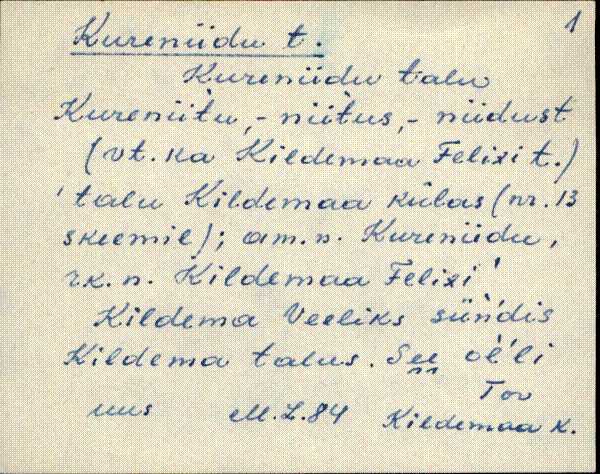 1
Kureniidu t.
Kureniidu talu
Kureniitu, - niitus, - niidust
(vt. ka Kildemaa Felixi t.)
'talu Kildemaa külas (nr. 13
skeemil); am. n. Kureniidu,
rk. n. Kildemaa Felixi'
Kildema Veeliks süǹdis
Kildema talus. See òĺli
uus M.L.84 Tor
Kildemaa k.